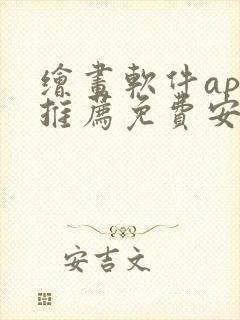 繪畫軟件ap
推薦免費安
安吉文